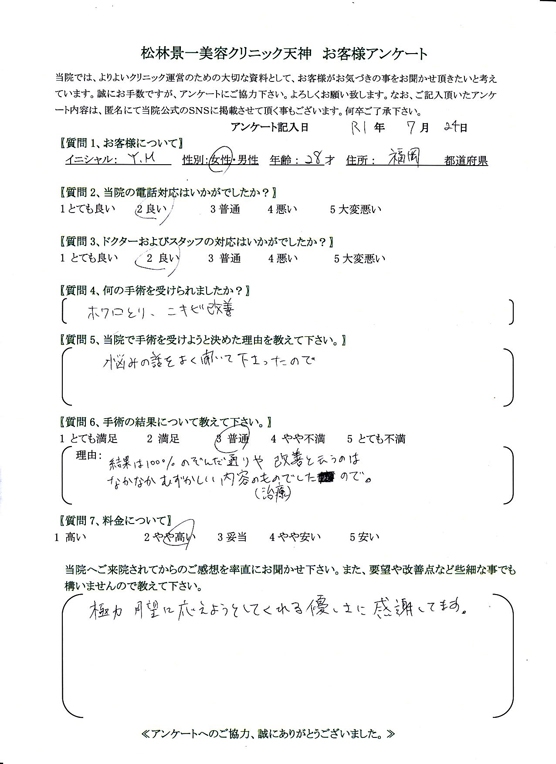 松林景一美容クリニック天神　お客様アンケート
当院では、よりよいクリニック運営のための大切な資料として、お客様がお気づきの事をお聞かせ頂きたいと考え
ています。誠にお手数ですが、アンケートにご協力下さい。よろしくお願い致します。なお、ご記入頂いたアンケ
ート内容は、匿名にて当院公式のSNSに掲載させて頂く事もございます。何卒ご了承下さい。
アンケート記入日　R1 年　7 月　24日
〖質問1、お客様について〗
イニシャル： Y.M　性別：女性・男性　年齢：28才　住所： 福岡　都道府県
〖質問2、当院の電話対応はいかがでしたか？〗
1とても良い　2 良い　3 普通　4悪い　5大変悪い
〖質問3、ドクターおよびスタッフの対応はいかがでしたか？〗
1 とても良い　2 良い　3 普通　4 悪い　5大変悪い
〖質問4、何の手術を受けられましたか？〗
ホクロとり、ニキビ改善
〖質問5、当院で手術を受けようと決めた理由を教えて下さい。〗
悩みの話をよく聞いて下さったので
〖質問6、手術の結果について教えて下さい。〗
1 とても満足　2 満足　3 普通　4 やや不満　5 とても不満
理由：
結果は100%のぞんだ通りや 改善と云うのは
なかなかむずかしい内容のものでしたので。
(治療)
〖質問7、料金について〗
1 高い　2 やや高い　3 妥当　4 やや安い　5 安い
当院へご来院されてからのご感想を率直にお聞かせ下さい。また、要望や改善点など些細な事でも
構いませんので教えて下さい。
極力 希望に応えようとしてくれる優しさに感謝してます。
≪アンケートへのご協力、誠にありがとうございました。≫